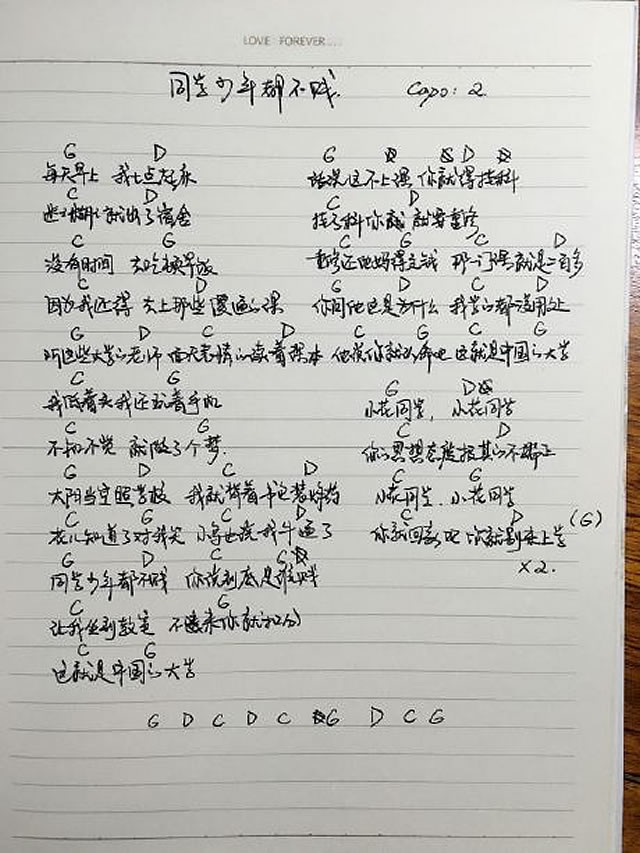 LOVE FOREVER....
同学少年都不贱 Capo: 2.
G D
每天早上 我七点起床
C D
迷迷糊糊就出了宿舍
C G
没有时间 去吃顿早饭
C D
因为我还得 去上那些 的课
G D C D
听这些大学的老师 毫无表情的读着课本
C G
我低着头我还玩着手机
C G
不知不觉 就做了个梦.
G D C D
太阳当空照学校 我就背着书包装炸药
C G C D
花儿知道了对我笑 小鸟也说我牛逼了
G D C G
同学少年都不贱 你说到底是谁贱
C G
让我坐到教室 不 来你就扣分
C G
这就是中国的大学
G D
结果这不上课 你就得挂科
C D
挂了科你就 就要重修
C G C D
重修还他妈得交钱 那一门课就是二百多
G D C D
你问他这是为什么 我学的都没用处
C G C G
他说你就认命吧 这就是中国的大学
G D
小花同学, 小花同学
C D
你的思想态度极其的不端正
C G
小花同学. 小花同学
C D (G)
你就回家吧 你就别来上学
×2.
G D C D C G D C G